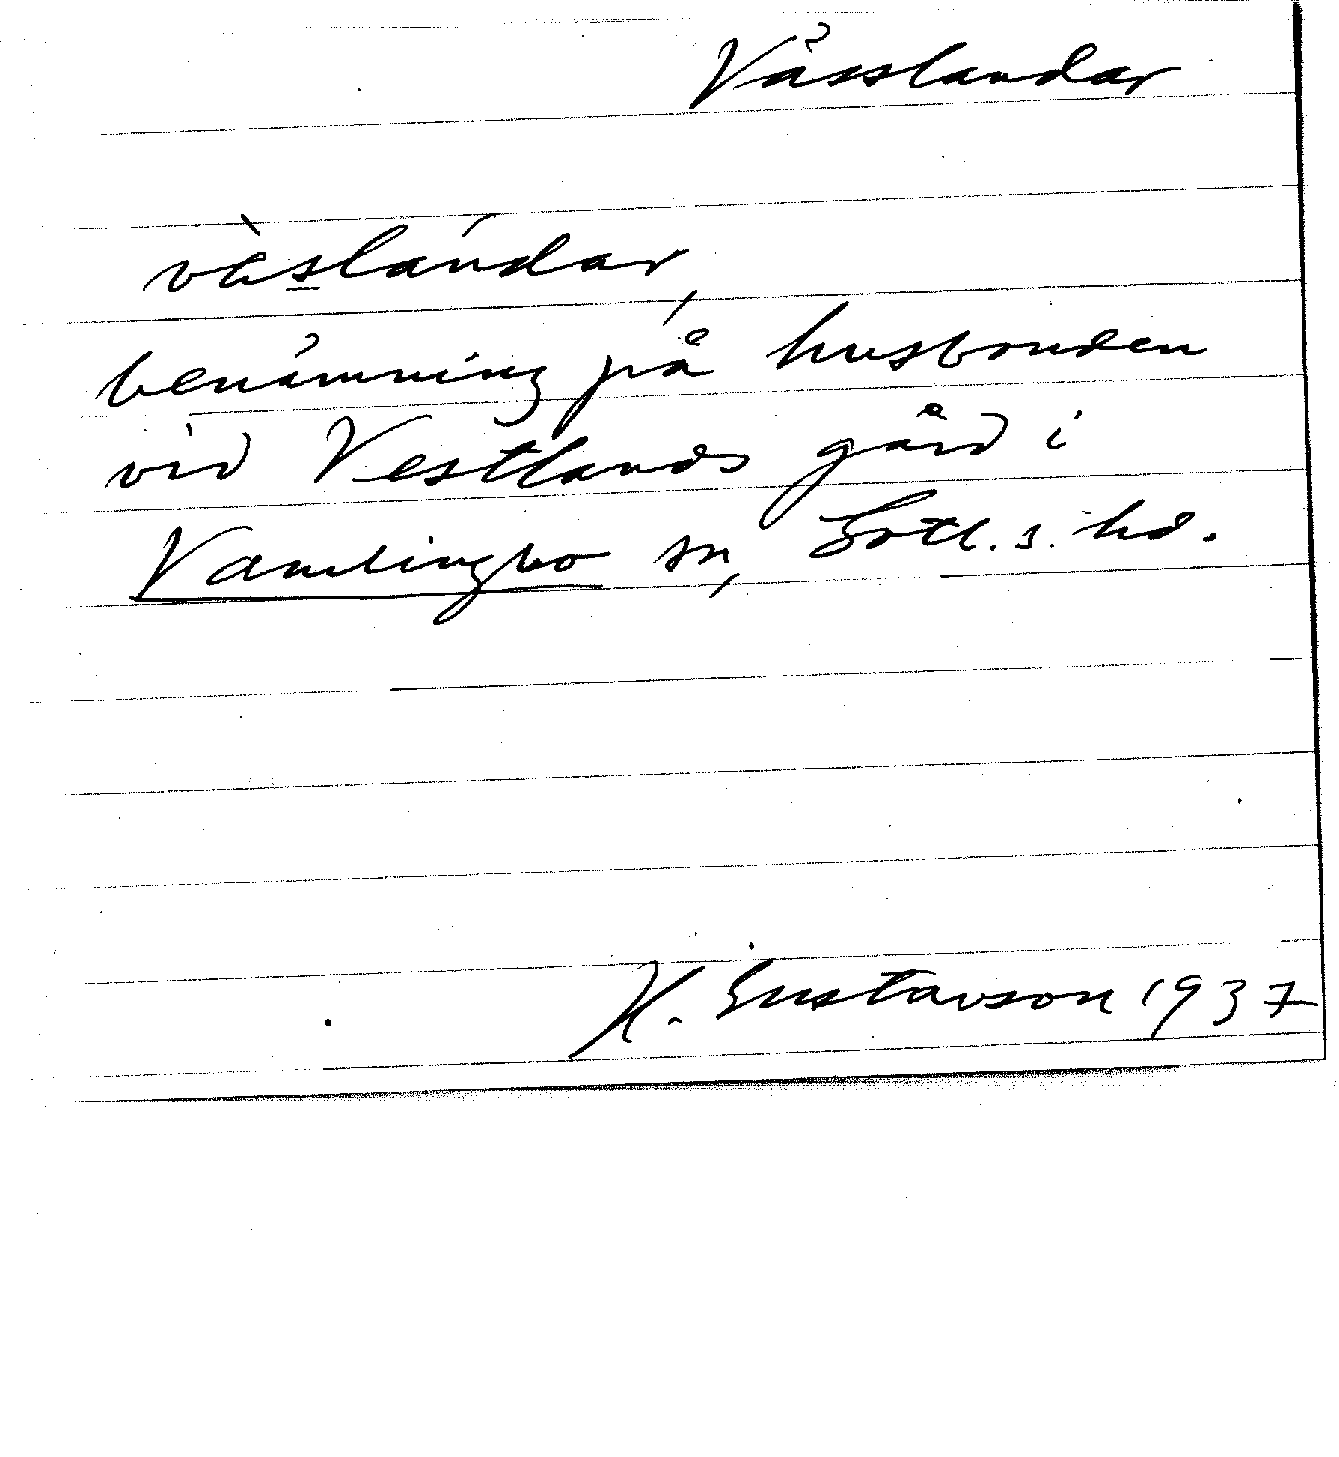 Vässlandar
vàs̲lándar,
benämning på husbonden
vid Vestlands gård i
Vamlingbo sn, Gotl. s. hd.
H. Gustavson 1937